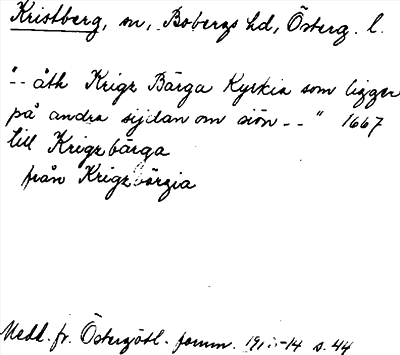 Kristberg, sn, Bobergs hd, Österg. l.
"-- åth Krigz Bärga Kyrkia som ligger
på andra sijdan om siön --" 1667
till Krigzbärga
från Krigzbörgia
Medd. fr. Östergötl. fornm. -14 s. 44